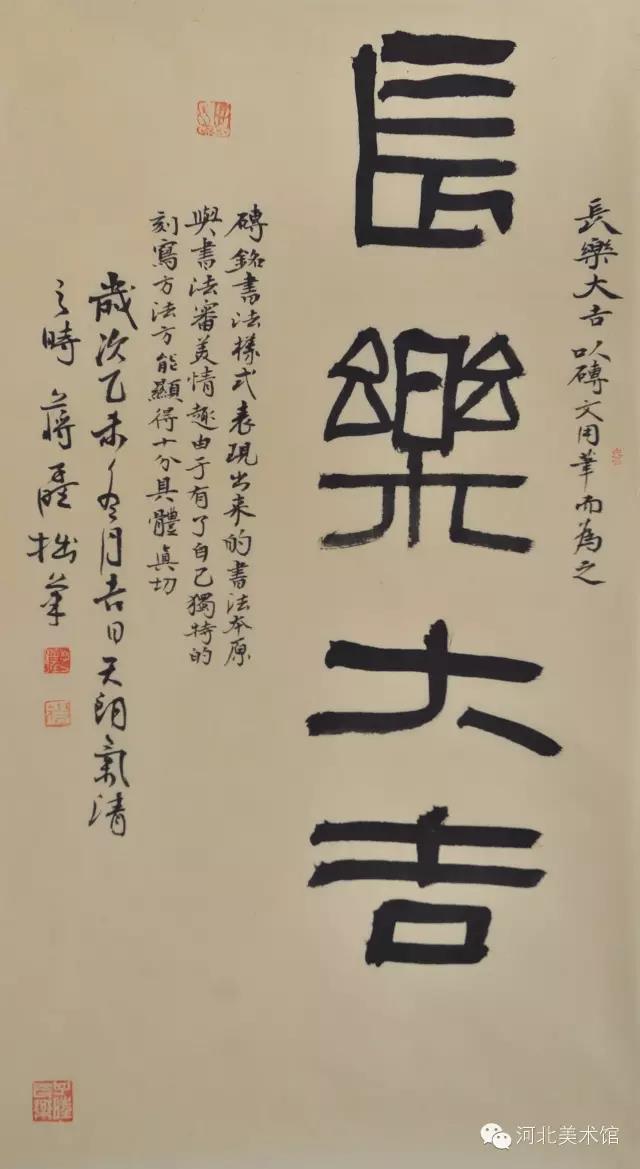 長樂大吉以磚文用筆而為之
長樂大吉
磚銘書法樣式表現出来的書法本原
與書法審美情趣由于有了自己獨特的
刻寫方法方能顯得十分具體真切
歲次乙未冬月吉日天朗氣清
之時蔣
拙筆
河北美术馆